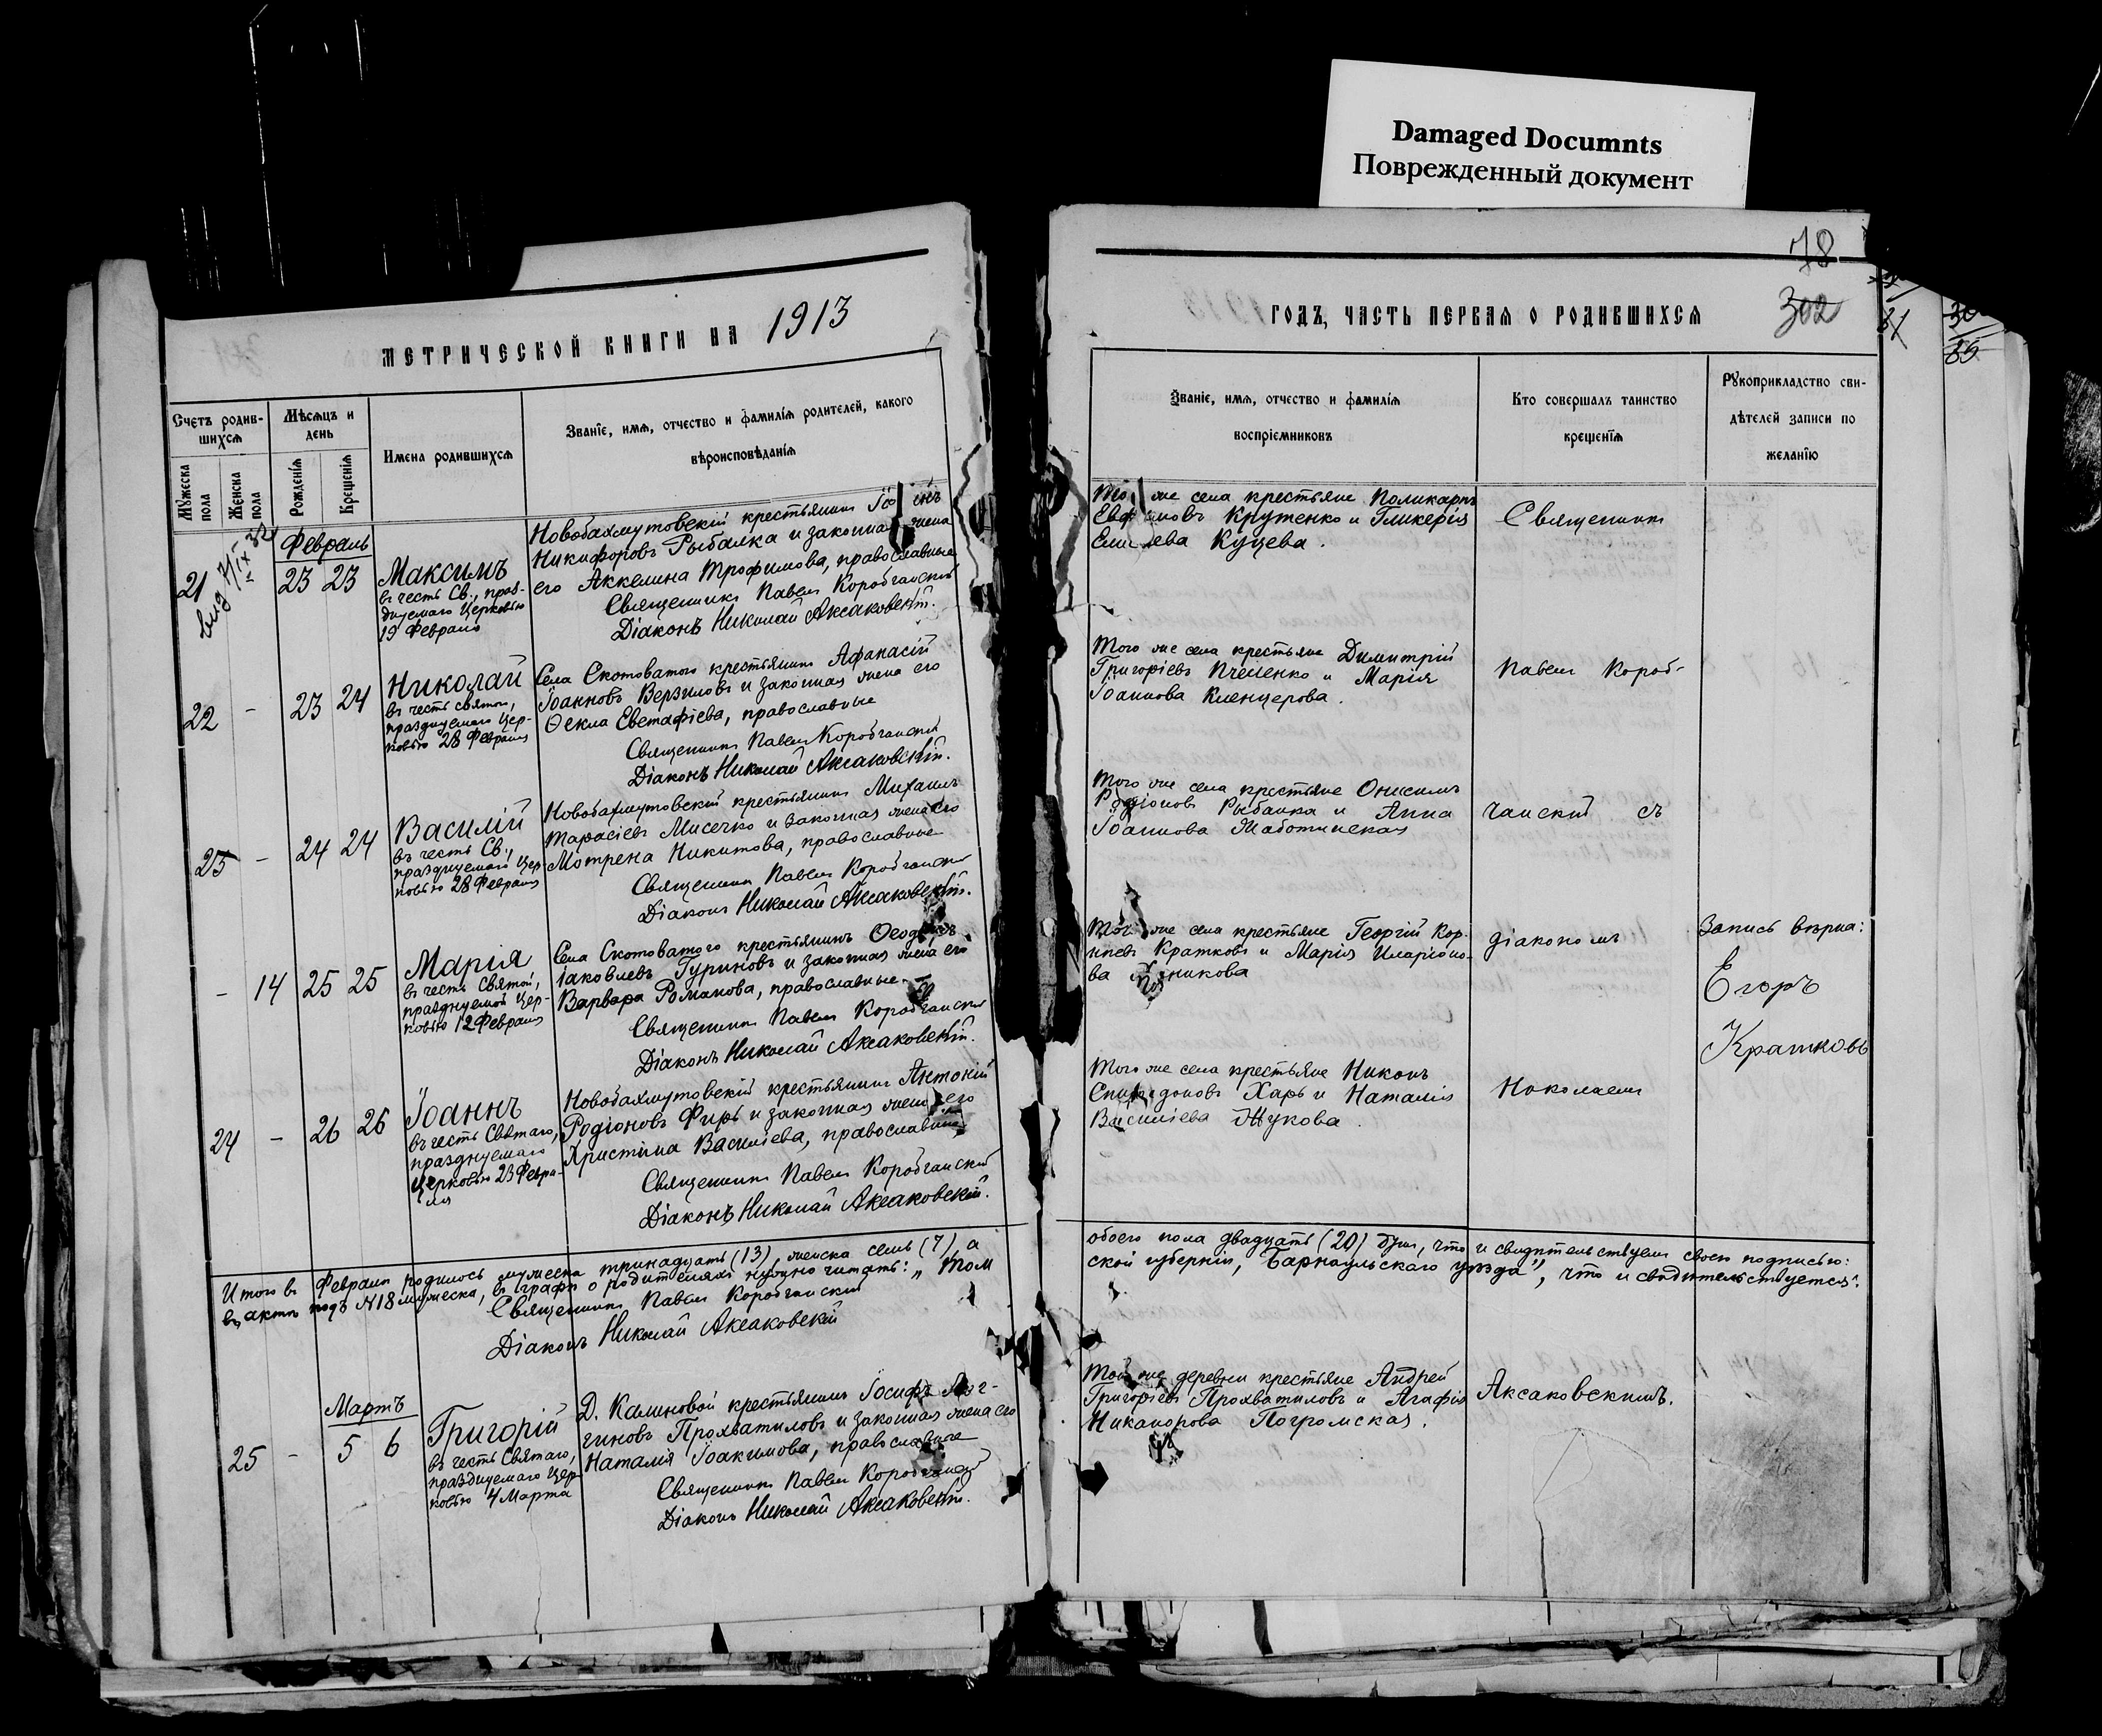 Damaged Documnts
Поврежденный документ
78
302
МЕТРИЧЕСКОЙ КНИГИ НА 1913
ГОДЪ, ЧАСТЬ ПЕРВАЯ О РОДИВШИХСЯ
Счетъ родив-
шихся
Мужеска пола
Женска пола
Мѣсяцъ и
день
Рожденія
Крещенія
Имена родившихся
Званіе, имя, отчество и фамилія родителей, какого
вѣроисповѣданія
Званіе, имя, отчество и фамилія
воспріемниковъ
Кто совершалъ таинство
крещенія
Рукоприкладство сви-
дѣтелей записи по
желанію
Февраль
21
23 23
Максимъ
въ честь Св., празд-
днуемаго Церковью
19 Февраля
Новобахмутовскій крестьянинъ
Никифоровъ Рыбалка и законная жена
его Аккелина Трофимова, православные
Священникъ Павелъ Коробчанскій
Діаконъ Николай Аксаковскій.
же села крестьяне Поликарпъ
Крутенко и Гликерія
Куцева.
Священникъ
22 - 23 24
Николай
въ честь святого,
празднуемаго Цер-
ковью 28 Февраля
Села Скотоватого крестьянинъ Афанасій
Іоанновъ Верзиловъ и законная жена его
Ѳекла Евстафіева, православные
Священникъ Павелъ Коробчанскій
Діаконъ Николай Аксаковскій.
Того же села крестьяне Димитрій
Григоріевъ Пчеленко и Марія
Іоаннова Кленцерова.
Павелъ Короб-
23 - 24 24
Василій
въ честь Св.,
празднуемаго Цер-
ковью 28 Февраля
Новобахмутовскій крестьянинъ Михаилъ
Тарасіевъ Мисечко и законная жена его
Мотрена Никитова, православные
Священникъ Павелъ Коробчанскій
Діаконъ Николай Аксаковскій.
Того же села крестьяне Онисимъ
Родіоновъ Рыбалка и Анна
Іоаннова Жаботинская
чанскій съ
- 14 25 25
Марія
въ честь Святой,
празднуемой Цер-
ковью 12 Февраля
Села Скотоватого крестьянинъ
Іаковлевъ Гуриновъ и законная жена его
Варвара Романова, православные
Священникъ Павелъ Коробчанскій
Діаконъ Николай Аксаковскій.
же села крестьяне Георгій Кор-
ніевъ Кратковъ и Марія Иларіоно-
ва
діакономъ
Запись вѣрна:
Егоръ
Кратковъ
24 - 26 26
Іоаннъ
въ честь Святаго,
празднуемаго
Церковью 23 Февра-
ля
Новобахмутовскій крестьянинъ Антоній
Родіоновъ Фирь и законная жена его
Христина Василіева, православные
Священникъ Павелъ Коробчанскій
Діаконъ Николай Аксаковскій.
Того же села крестьяне Никонъ
Спиридоновъ Харь и Наталія
Василіева Жукова.
Николаемъ
Итого въ Февралѣ родилось мужеска тринадцать (13), женска семь (7), а
обоего пола двадцать (20) душъ, что и свидѣтельствуемъ своею подписью:
въ актѣ подъ №18 мужеска, въ графѣ о родителяхъ нужно читать: „Том
ской губерніи, Барнаульскаго уѣзда", что и свидѣтельствуется:
Священникъ Павелъ Коробчанскій
Діаконъ Николай Аксаковскій
Мартъ
25 - 5 6
Григорій
въ честь Святаго,
празднуемаго Цер-
ковью 4 Марта
Д. Калиновой крестьянинъ Іосифъ
гиновъ Прохватиловъ и законная жена его
Наталія Іоакимова, православные
Священникъ Павелъ Коробчанскій
Діаконъ Николай Аксаковскій.
Той же деревни крестьяне Андрей
Григоріевъ Прохватиловъ и Агафія
Никанорова Погромская.
Аксаковскимъ.